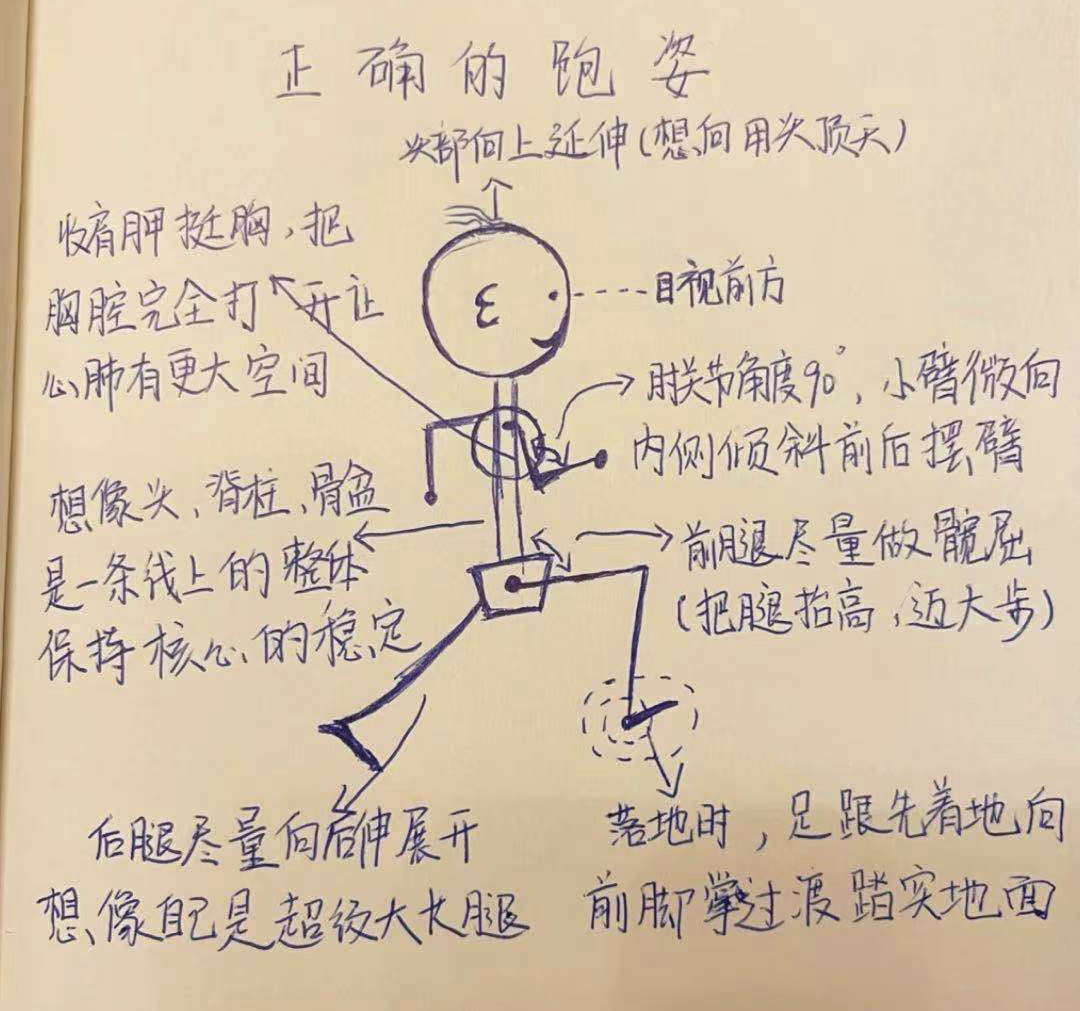 正确的跑姿
头部向上延伸(想向用头顶天)
收肩胛挺胸，把
胸腔完全打开让
心肺有更大空间
目视前方
肘关节角度90°，小臂微向
内侧倾斜前后摆臂
想像头、脊柱、骨盆
是一条线上的整体
保持核心的稳定
前腿尽量做髋屈
(把腿抬高，迈大步)
后腿尽量向后伸展开
想像自己是超级大长腿
落地时，足跟先着地向
前脚掌过渡踏实地面